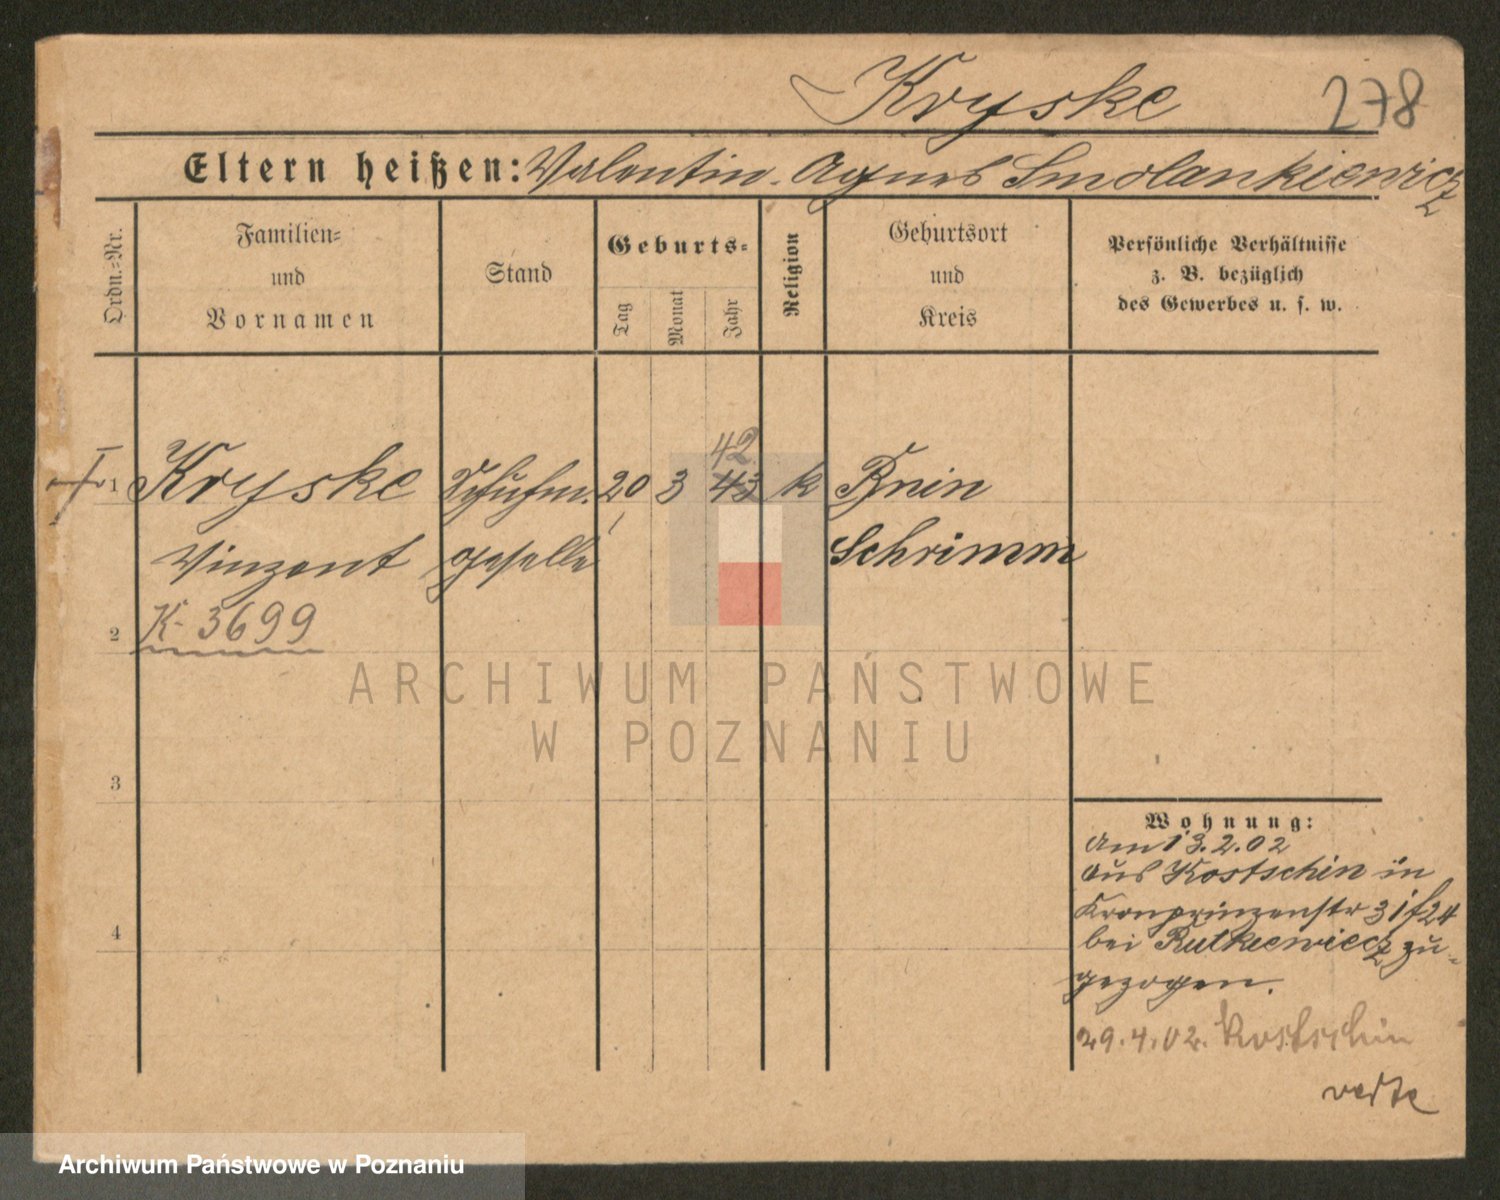 Kryske 278
Eltern heißen: Valentin. Agnes Smolankiewicz
Ordn.=Nr.
Familien=
und
Vornamen
Stand
Geburts=
Tag
Monat
Jahr
Religion
Geburtsort
und
Kreis
Persönliche Verhältnisse
z. B. bezüglich
des Gewerbes u. s. w.
42
1 Kryske Schuhm. 20 3 43 k Bnin
Vinzent geselle Schrimm
2 K. 3699
3
4
Wohnung:
Am 13.2.02
aus Kostschin in
Kronprinzenstr 31/24
bei Rutkiewicz zu=
gezogen.
29.4.02. Kostschin
verte
ARCHIWUM PAŃSTWOWE
W POZNANIU
Archiwum Państwowe w Poznaniu